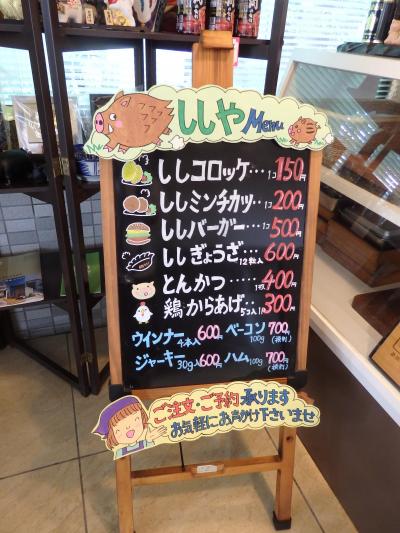 ししやMenu
ししコロッケ…1コ150円
ししミンチカツ…1コ200円
ししバーガー…1コ500円
ししぎょうざ…12粒入600円
とんかつ……1枚400円
鶏からあげ…5コ入300円
ウインナー4本入600円 ベーコン100g700円(税別)
ジャーキー30g入600円 ハム100g700円(税別)
ご注文・ご予約承ります
お気軽にお声かけ下さいませ